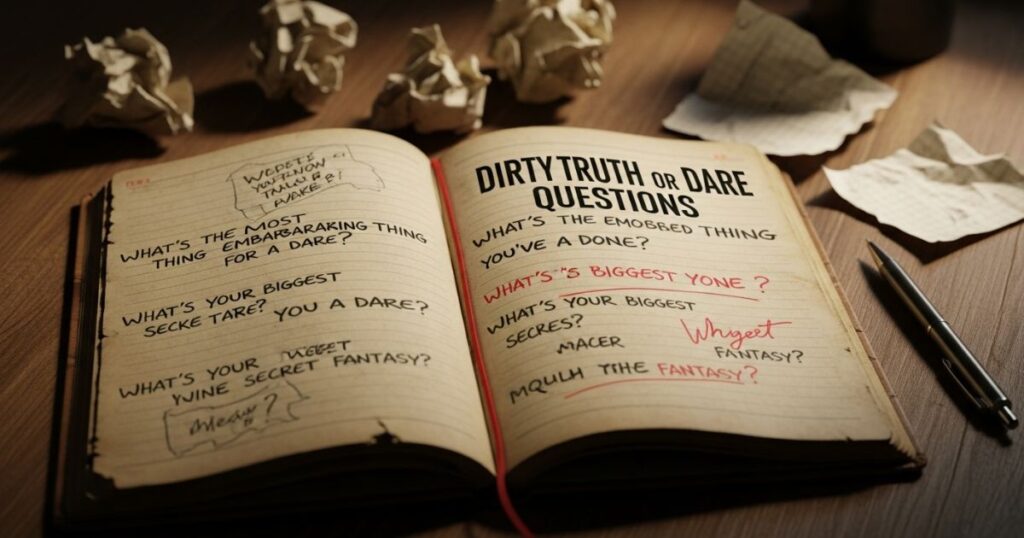 WHAT'S THE MOST
THING EMBARBARAKING THING
FOR A DARE?
WHAT'S YOUR BIGGEST
SECKE TARE? YOU A DARE?
WHAT'S YOUR
YVINE SECRET FANTASY?
DIRTY TRUTH OR DARE
QUESTIONS
WHAT'S THE EMOBRED THING
YOU'VE A DONE?
WHAT'S 'S BIGGEST YONE ?
WHAT'S YOUR BIGGEST
SECRES?
MACER
Whigeet
FANTASY?
MQULH THE FANTASY?